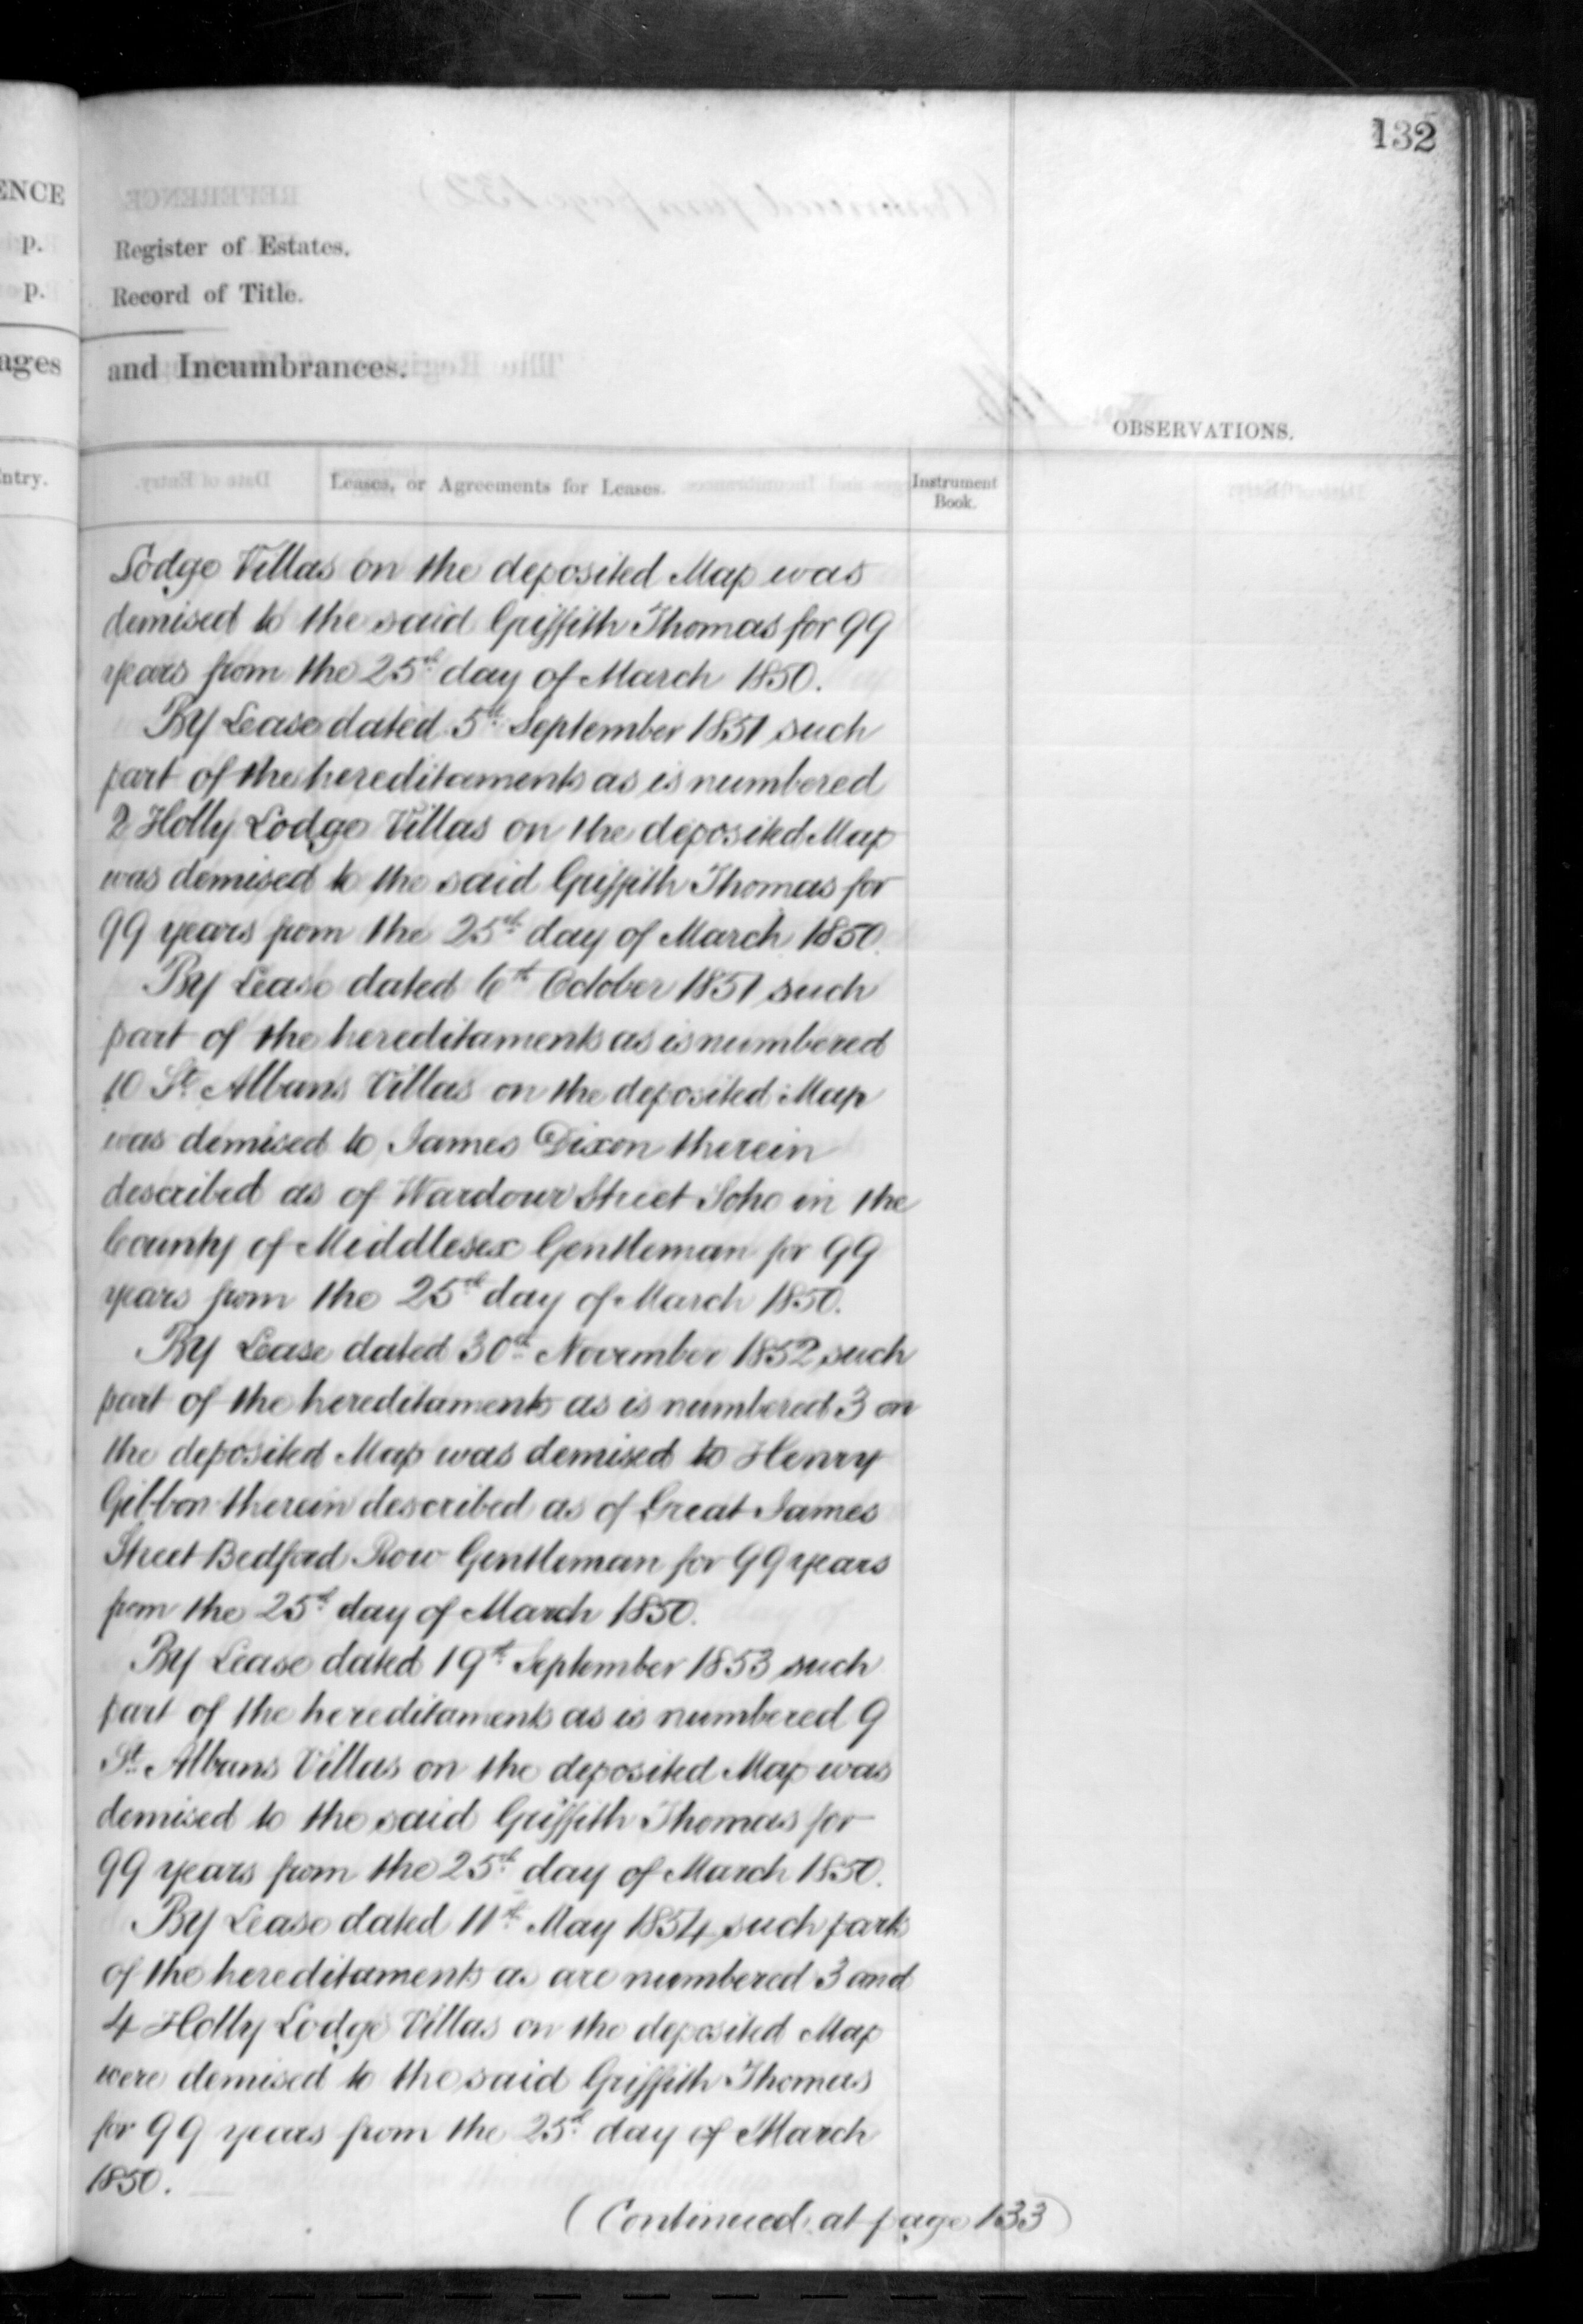 132
ENCE
p.
p.
ages
Entry.
Register of Estates.
Record of Title.
and Incumbrances.
OBSERVATIONS.
Leases, or Agreements for Leases.
Instrument Book.
Lodge Villas on the deposited Map was
demised to the said Griffith Thomas for 99
years from the 25th day of March 1850.
By Lease dated 5th September 1851 such
part of the hereditaments as is numbered
2 Holly Lodge Villas on the deposited Map
was demised to the said Griffith Thomas for
99 years from the 25th day of March 1850.
By Lease dated 6th October 1851 such
part of the hereditaments as is numbered
10 St. Albans Villas on the deposited Map
was demised to James Dixon therein
described as of Wardour Street Soho in the
County of Middlesex Gentleman for 99
years from the 25th day of March 1850.
By Lease dated 30th November 1852 such
part of the hereditaments as is numbered 3 on
the deposited Map was demised to Henry
Gibbon therein described as of Great James
Street Bedford Row Gentleman for 99 years
from the 25th day of March 1850.
By Lease dated 19th September 1853 such
part of the hereditaments as is numbered 9
St. Albans Villas on the deposited Map was
demised to the said Griffith Thomas for
99 years from the 25th day of March 1850.
By Lease dated 11th May 1854 such parts
of the hereditaments as are numbered 3 and
4 Holly Lodge Villas on the deposited Map
were demised to the said Griffith Thomas
for 99 years from the 25th day of March
1850.
(Continued at page 133)